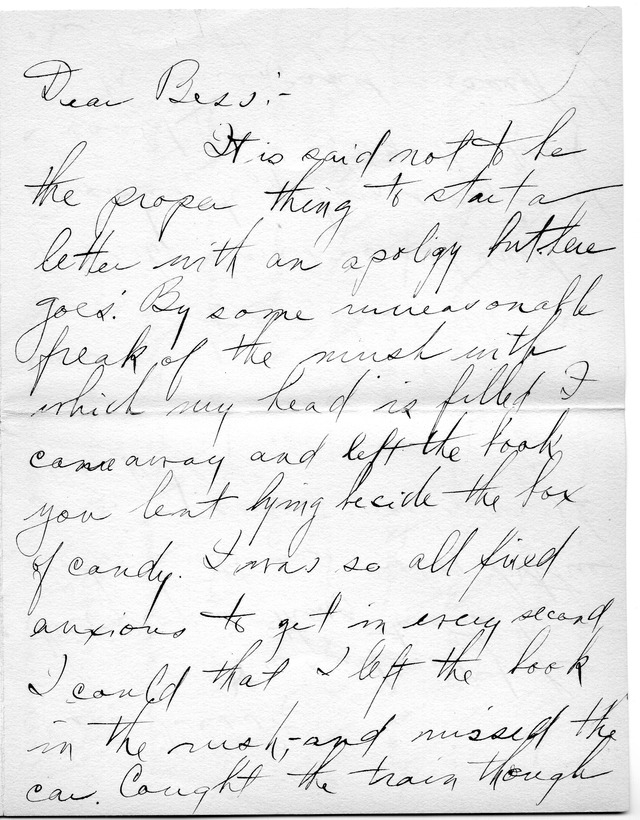 Dear Bess:-
It is said not to be
the proper thing to start a
letter with an apolgy but here
goes. By some unreasonable
freak of the mush with
which my head is filled I
came away and left the book
you lent lying beside the box
of candy. I was so all fired
anxious to get in every second
I could that I left the book
in the rush,-and missed the
car. Caught the train though